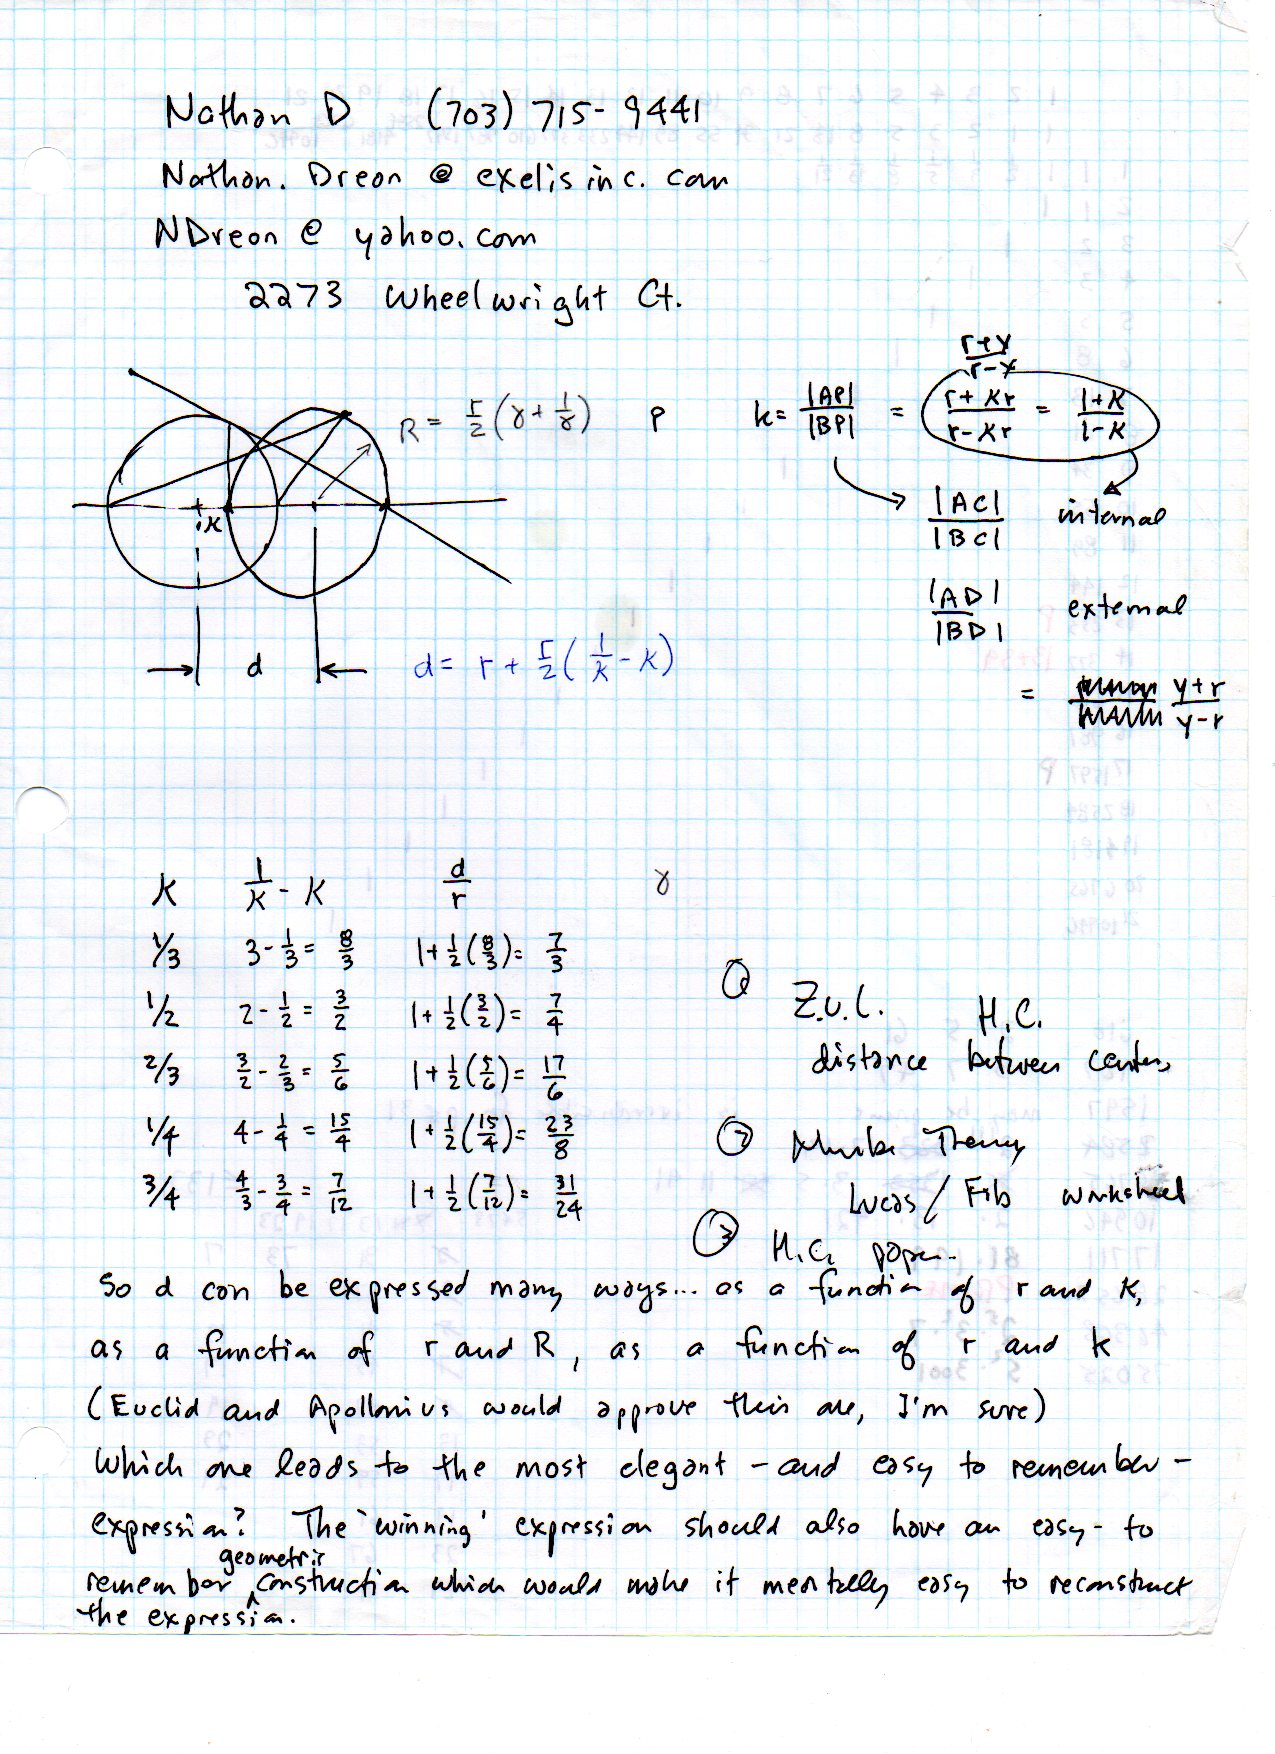 Nathan D (703) 715-9441
Nathan.Dreon@exelisinc.com
NDreon@yahoo.com
2273 Wheelwright Ct.
R = r/2 (γ + 1/γ) P
k = |AP|/|BP| = (r+κr)/(r-κr) = (1+κ)/(1-κ)
(r+x)/(r-x)
κ
|AC|/|BC| internal
|AD|/|BD| external
= (y+r)/(y-r)
d
d = r + r/2 (1/κ - κ)
κ 1/κ - κ d/r γ
1/3 3 - 1/3 = 8/3 1 + 1/2(8/3) = 7/3
1/2 2 - 1/2 = 3/2 1 + 1/2(3/2) = 7/4
2/3 3/2 - 2/3 = 5/6 1 + 1/2(5/6) = 17/6
1/4 4 - 1/4 = 15/4 1 + 1/2(15/4) = 23/8
3/4 4/3 - 3/4 = 7/12 1 + 1/2(7/12) = 31/24
① Z.U.L. H.C.
distance between centers
② Number Theory
Lucas / Fib worksheet
③ H.C. paper
So d can be expressed many ways... as a function of r and κ,
as a function of r and R, as a function of r and k
(Euclid and Apollonius would approve this one, I'm sure)
Which one leads to the most elegant - and easy to remember -
expression? The 'winning' expression should also have an easy-to
remember geometric construction which would make it mentally easy to reconstruct
the expression.